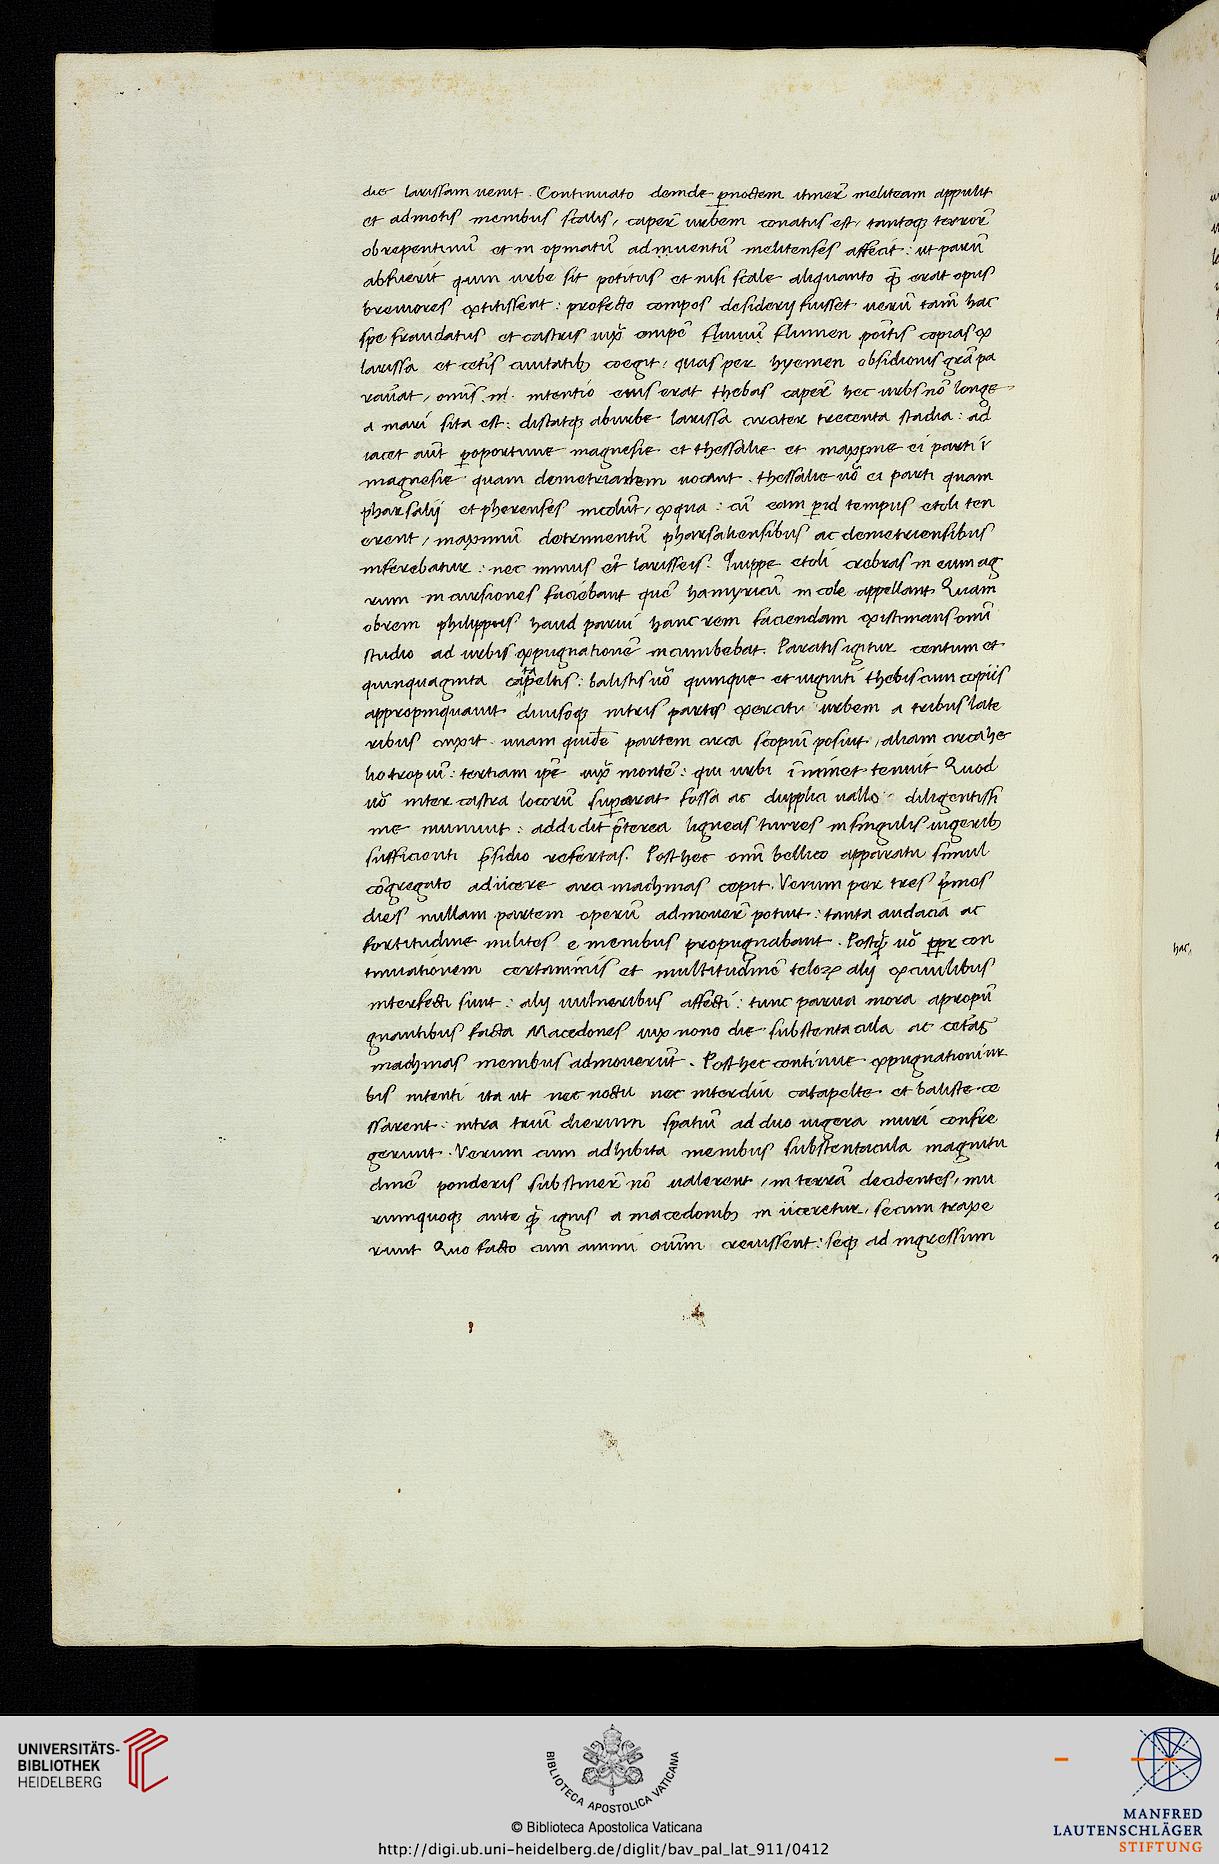 die larissam uenit. Continuato deinde p̱noctem itiner̄ meliteam appulit
et admotis menibus scalis, caper̄ urbem conatus est, tantoqꝫ terror̄
obrepentinū et in opinatū adinuentū melitenses affecit: ut parū
abfuerit quin urbe sit potitus et nisi scale aliquanto q̄ erat opus
breuiores extitissent: profecto compos desiderij fuisset uerū tam̄ hac
spe fraudatus et castris iuxͣ flumen positis copias ex
larissa et cet̄is ciuitatibꝫ coegit: quas per hyemen obsidionis grā pa
rauāt, om̄is .n. intentio eius erat thebas caper̄ hec urbs nō longe
a mari sita est: distatqꝫ aburbe larissa circiter trecenta stadia: ad
iacet aūt p̱oportune magnesie et thessalie et maxime ei parti ī
magnesie quam demetriadem uocant. thessalie uō ei parti quam
pharsalij et pherenses incolūt, exqua: cū eam p̱id tempus etoli ten
erent, maximū detrimentū pharsaliensibus ac demetriensibus
inferebatur: nec minus et̄ larisseis. Quippe etoli crebras in eum ag
rum incursiones faciebant quē hamyricū incole appellant Quam
obrem philippus haud parui hanc rem faciendam existimans omī
studio ad urbis expugnationē incumbebat. Paratis igitur centum et
quinquaginta catapeltis: balistis uō quinque et uiginti thebis cum copiis
appropinquauit diuisoqꝫ intris partes exercitu urbem a tribus late
ribus cinxit. unam quidē partem circa scopiū posuit, aliam circa he
liotropiū: tertiam ip̄e iuxͣ montē: qui urbi īminet tenuit Quod
uō inter castra locorū sup̱erat fossa ac dupplici uallo diligentissi
me muniuit: addidit p̄terea ligneas turres insingulis iugeribꝫ
sufficienti p̄sidio refertas. Post hec omī bellico apparatu simul
cōgregato adiicere arci machinas cepit. Verum per tres p̄mos
dies nullam partem operū admouer̄ potuit: tanta audacia ac
fortitudine milites e menibus propugnabant. Postq̄ uō pp̱r con
tinuationem certaminis et multitudinē teloꝝ alij exciuilibus
interfecti sunt: alij uulneribus affecti: tunc parua mora apropū
gnantibus facta Macedones uix nono die substentacula ac cet̄as
machinas menibus admouerūt. Post hec continue expugnationi ur
bis intenti ita ut nec noctu nec interdiu catapelte et baliste ce
ssarent: intra triū dierum spatiū ad duo iugera muri confre
gerunt. Verum cum adhibita menibus substentacula magnitu
dinē ponderis substiner̄ nō ualerent, in terrā decidentes, mu
rumquoqꝫ ante q̄ ignis a macedonibꝫ in iiceretur, secum traxe
runt Quo facto cum animi ciuīm creuissent: seqꝫ ad ingressum
hac,
UNIVERSITÄTS-
BIBLIOTHEK
HEIDELBERG
BIBLIOTECA APOSTOLICA VATICANA
© Biblioteca Apostolica Vaticana
http://digi.ub.uni-heidelberg.de/diglit/bav_pal_lat_911/0412
MANFRED
LAUTENSCHLÄGER
STIFTUNG